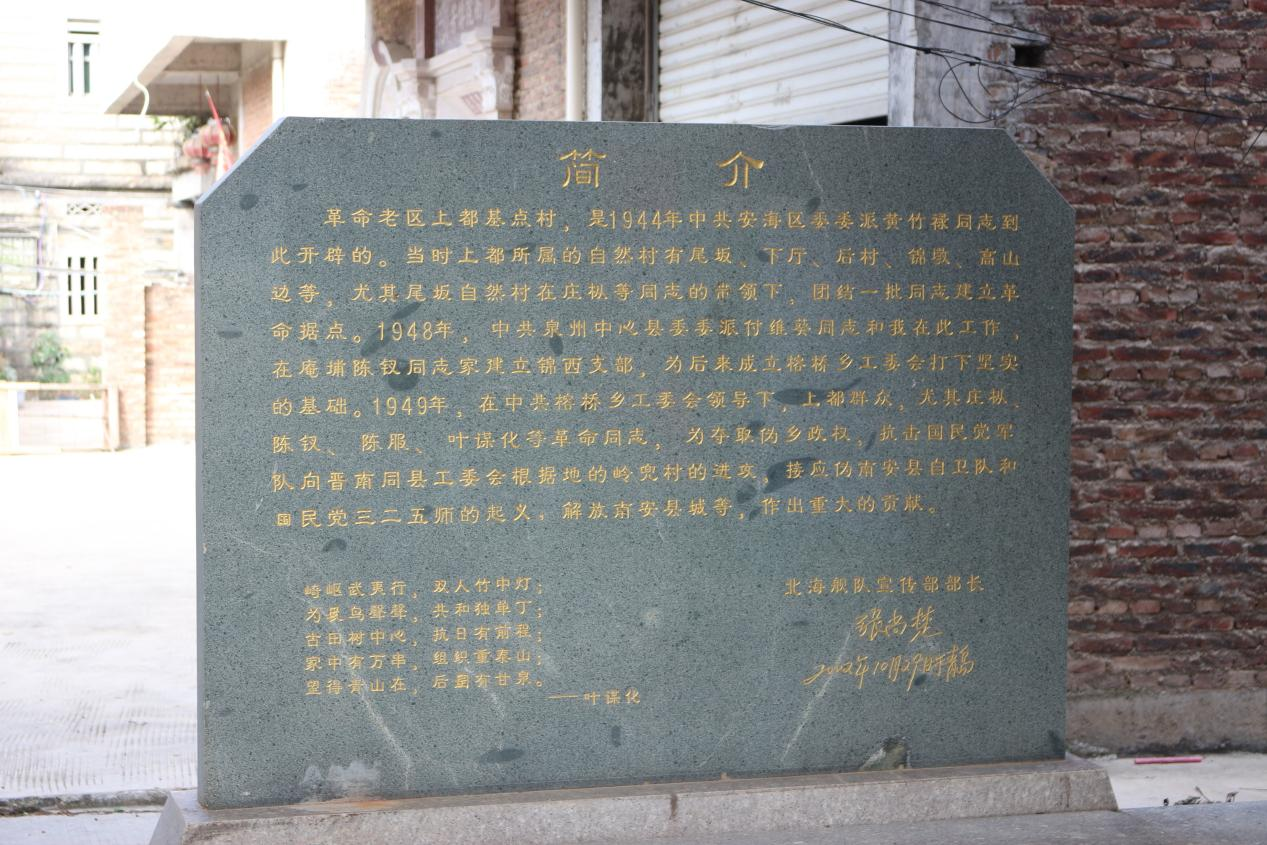 简 介
革命老区上都基点村，是1944年中共安海区委委派黄竹禄同志到
此开辟的。当时上都所属的自然村有尾坂、下厅、后村、锦墩、高山
边等，尤其尾坂自然村在庄枞等同志的带领下，团结一批同志建立革
命据点。1948年，中共泉州中心县委委派付维葵同志和我在此工作，
在庵埔陈钗同志家建立锦西支部，为后来成立榕桥乡工委会打下坚实
的基础。1949年，在中共榕桥乡工委会领导下，上都群众，尤其庄枞、
陈钗、陈服、叶谋化等革命同志，为夺取伪乡政权，抗击国民党军
队向晋南同县工委会根据地的岭兜村的进攻，接应伪南安县自卫队和
国民党三二五师的起义，解放南安县城等，作出重大的贡献。
崎岖武夷行，双人竹中灯；
为民鸟声声，共和独单丁；
古田树中心，抗日有前程；
家中有万串，组织重泰山；
望得青山在，后当有甘泉。
——叶谋化
北海舰队宣传部部长
张尚楚
2002年10月29日于青岛